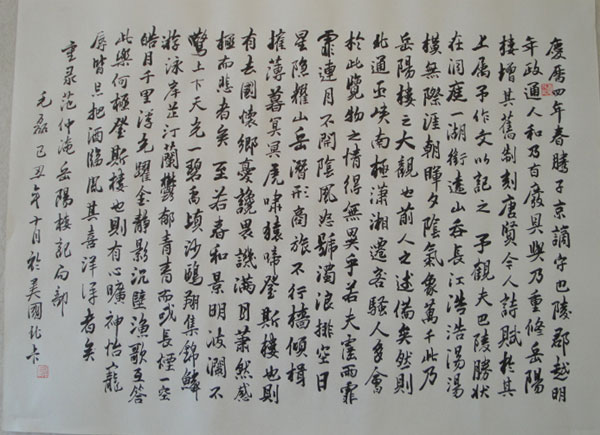 慶曆四年春滕子京謫守巴陵郡越明
年政通人和乃百廢具興乃重修岳陽
樓增其舊制刻唐賢今人詩賦於其
上屬予作文以記之 予觀夫巴陵勝狀
在洞庭一湖銜遠山吞長江浩浩湯湯
橫無際涯朝暉夕陰氣象萬千此乃
岳陽樓之大觀也前人之述備矣然則
北通巫峽南極瀟湘遷客騷人多會
於此覽物之情得無異乎若夫霪雨霏
霏連月不開陰風怒號濁浪排空日
星隱耀山岳潛形商旅不行檣傾楫
摧薄暮冥冥虎嘯猿啼登斯樓也則
有去國懷鄉憂讒畏譏滿目蕭然感
極而悲者矣 至若春和景明波瀾不
驚上下天光一碧萬頃沙鷗翔集錦鱗
游泳岸芷汀蘭鬱郁青青而或長煙一空
皓月千里浮光躍金靜影沉璧漁歌互答
此樂何極登斯樓也則有心曠神怡寵
辱皆忘把酒臨風其喜洋洋者矣
重录范仲淹岳陽樓記局部
磊己丑年十月於美國北卡